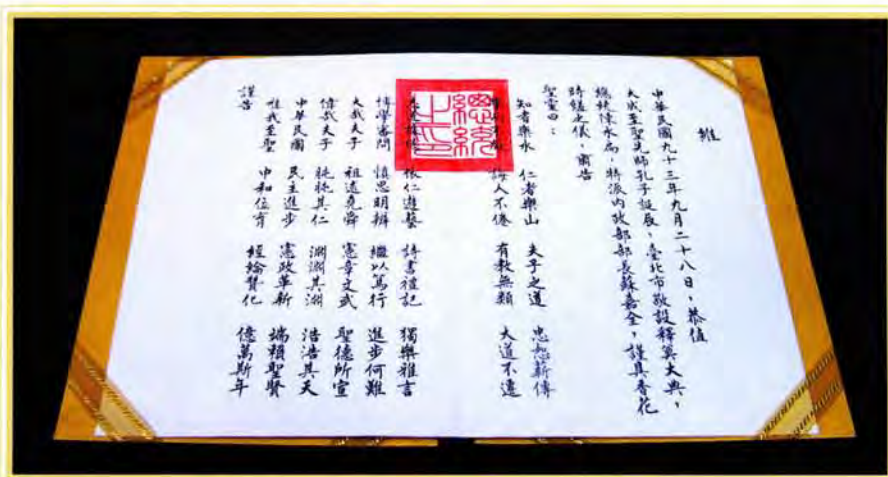 維
中華民國九十三年九月二十八日，恭值
大成至聖先師孔子誕辰，臺北市敬設釋奠大典，
總統陳水扁，特派內政部部長蘇嘉全，謹具香花
時饈之儀，肅告
聖靈曰：
知者樂水 仁者樂山 夫子之道 忠恕薪傳
誨人不倦 有教無類 大道不遠
依仁遊藝 詩書禮記 獨樂雅言
博學審問 慎思明辨 繼以篤行 進步何難
大哉夫子 祖述堯舜 憲章文武 聖德所宣
偉哉夫子 肫肫其仁 淵淵其淵 浩浩其天
中華民國 民主進步 憲政革新 端賴聖賢
惟我至聖 中和位育 經綸贊化 億萬斯年
謹告
總統
之印